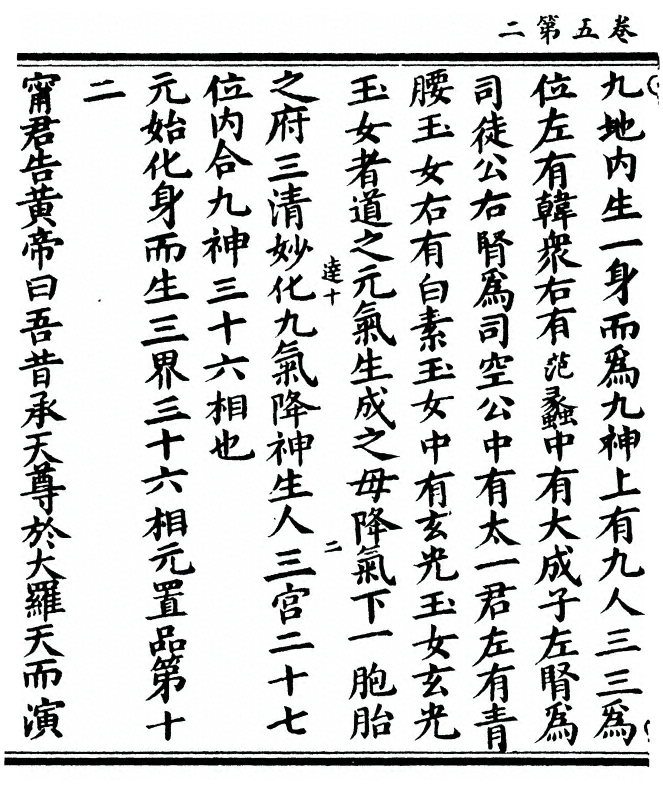 卷五第二
九地內生一身而爲九神上有九人三三爲
位左有韓衆右有范蠡中有大成子左腎爲
司徒公右腎爲司空公中有太一君左有青
腰玉女右有白素玉女中有玄光玉女玄光
玉女者道之元氣生成之母降氣下一胞胎
逵十
二
之府三清妙化九氣降神生人三宮二十七
位內合九神三十六相也
元始化身而生三界三十六相元置品第十
二
甯君告黃帝曰吾昔承天尊於大羅天而演